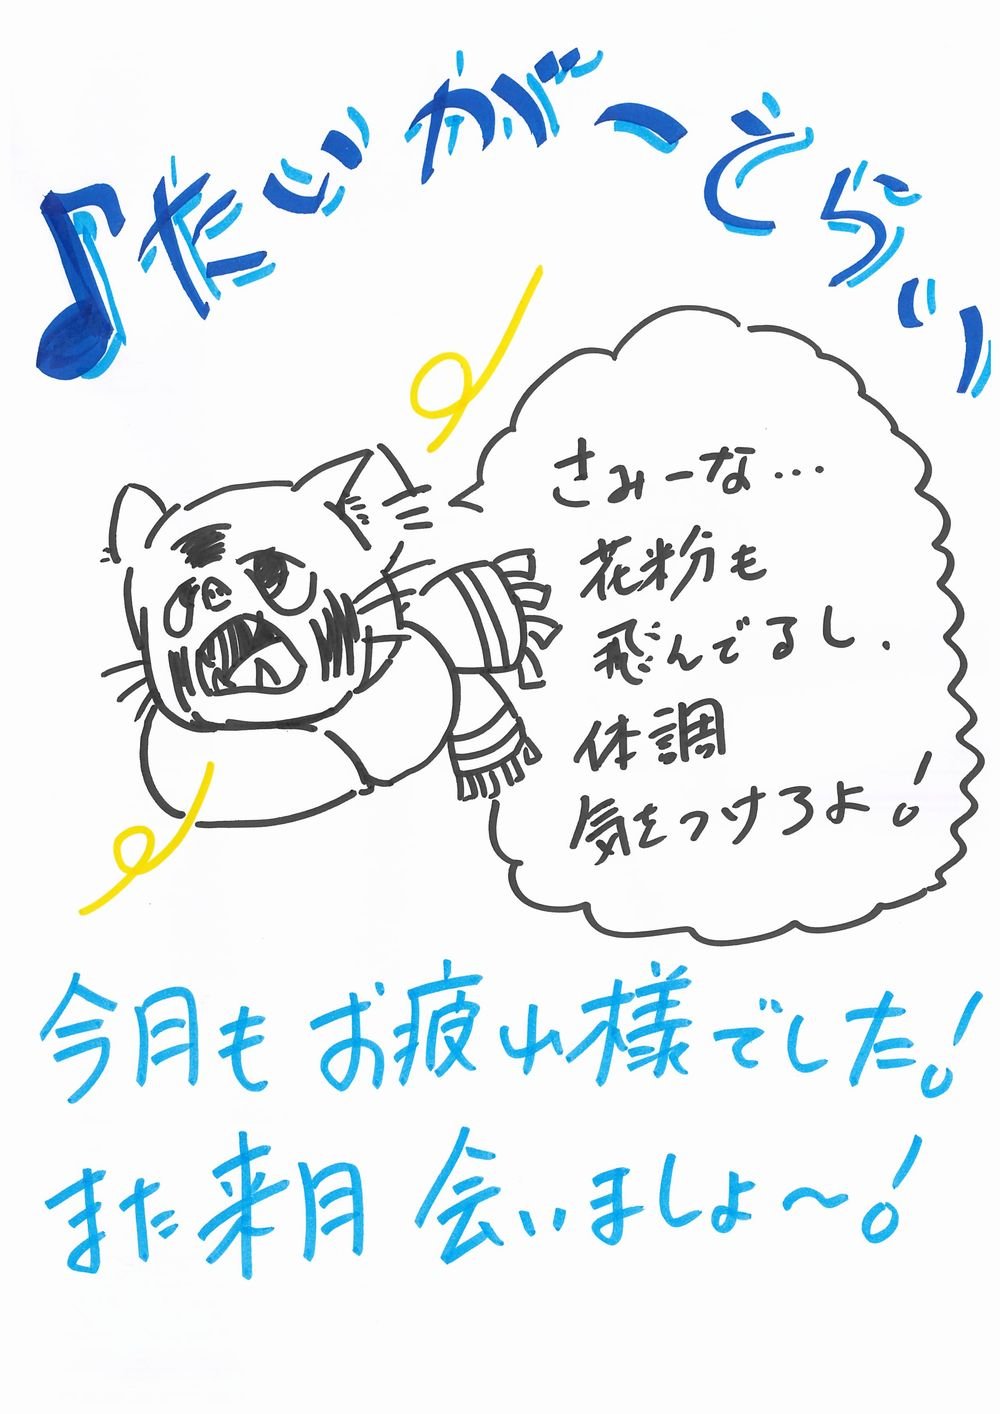 ♪たいがーとらい
さみーな…
花粉も
飛んでるし、
体調
気をつけろよ！
今月もお疲れ様でした！
また来月会いましょ〜！